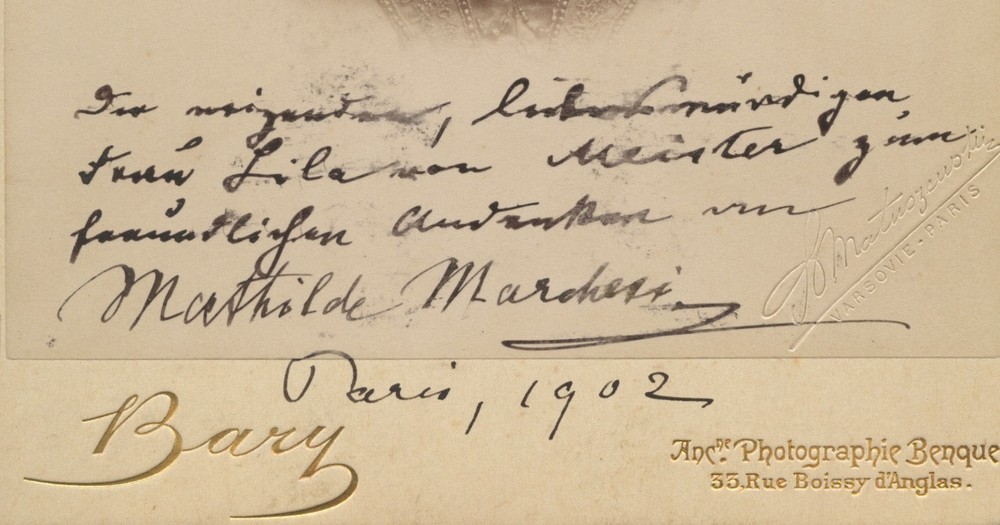 Der reizenden, liebenswürdigen
Frau Lila von Meister zum
freundlichen Andenken von
Mathilde Marchesi
Paris, 1902
Matuszewski
VARSOVIE - PARIS
Bary
Ancne. Photographie Benque
33, Rue Boissy d'Anglas.